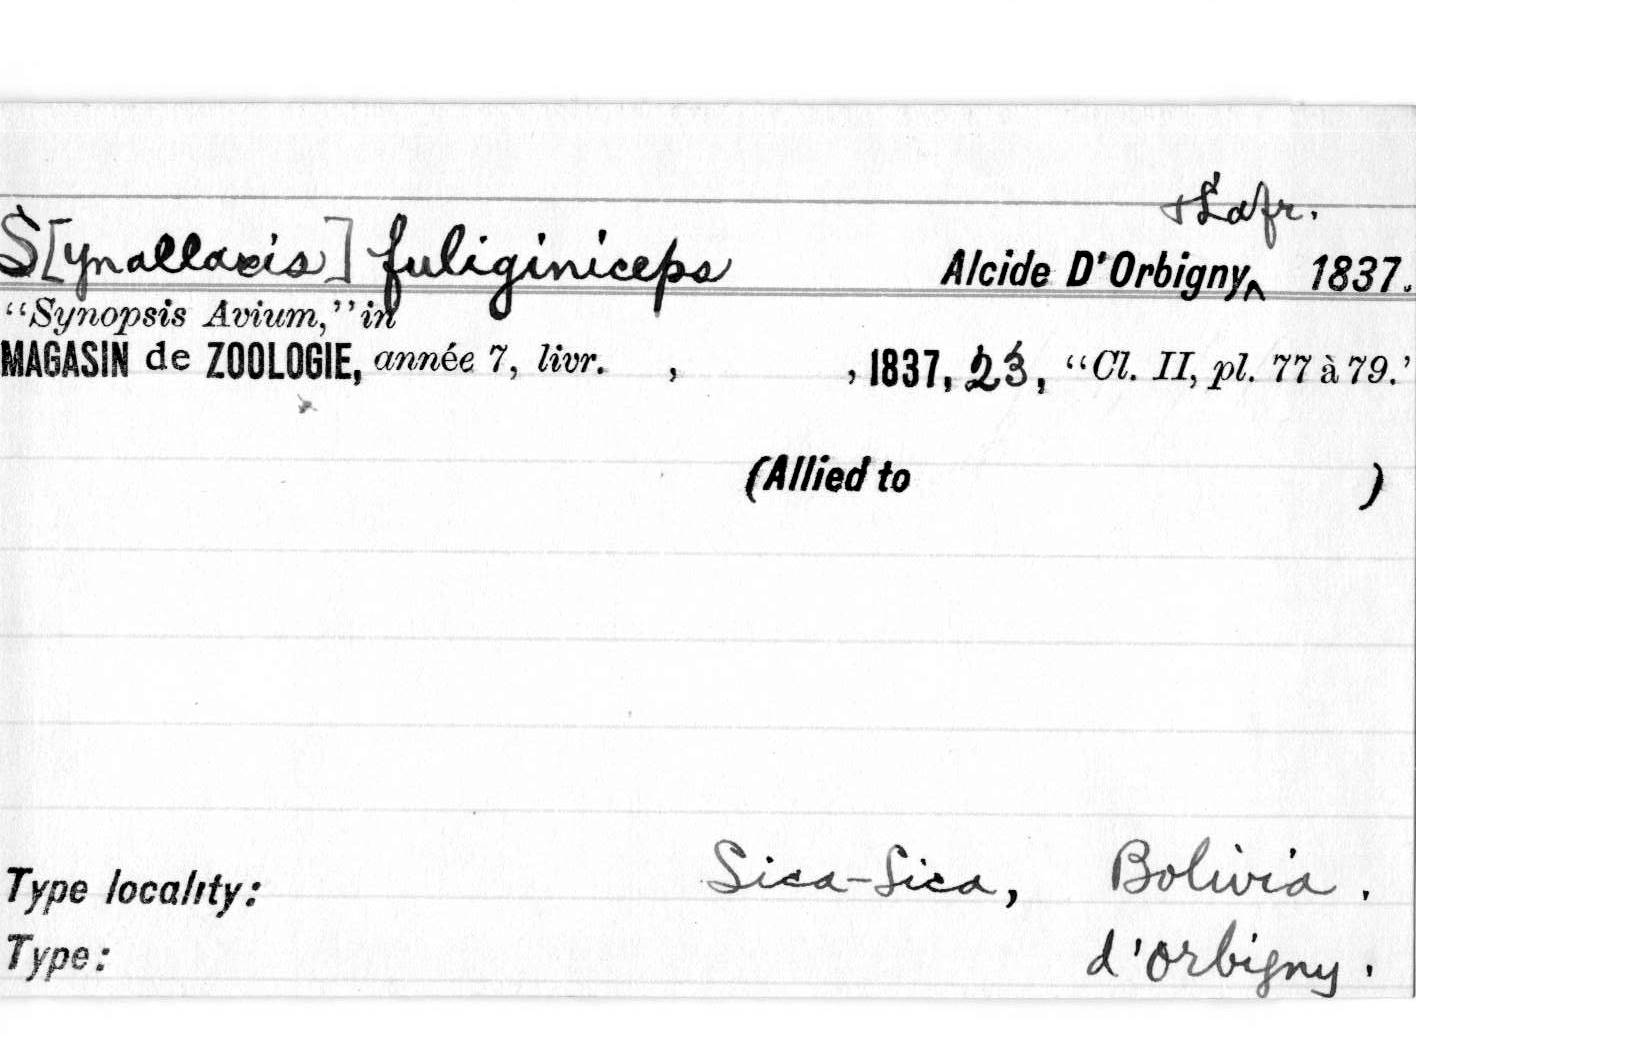 + Lafr.
S[ynallaxis] fuliginiceps Alcide D'Orbigny, ^ 1837.
"Synopsis Avium," in
MAGASIN de ZOOLOGIE, année 7, livr. , , 1837, 23, "Cl. II, pl. 77 à 79.'
(Allied to )
Type locality: Sica-Sica, Bolivia.
Type: d'Orbigny.